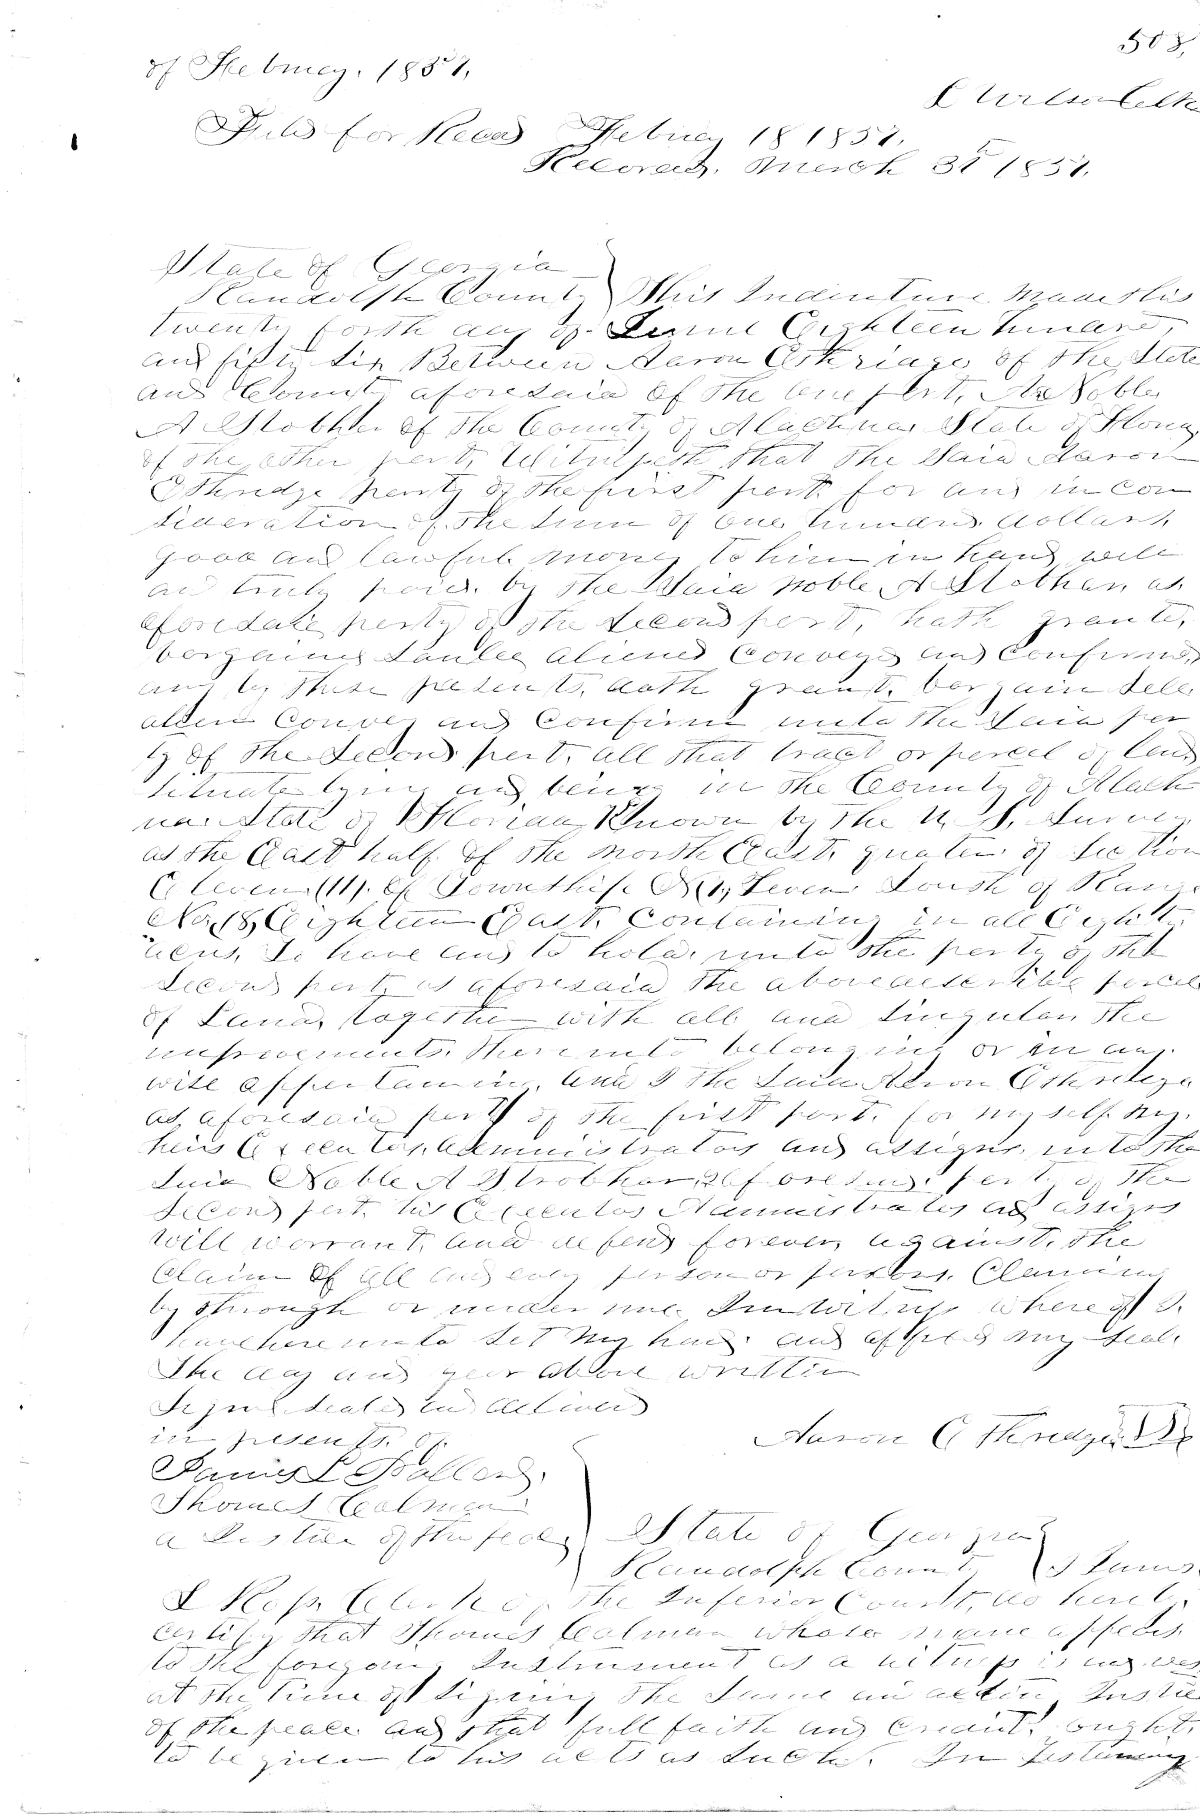 508,
of Februey. 1857,
L Wilson Clk
Filed for Recod Februey 18 1857.
Recorded. March 31st 1857.
State of Georgia
Randolph County } This Indenture made this
twenty forth day of June Eighteen hundred
and fifty six Between Aaron Ethriage of the State
and County aforesaid of the one part, & Noble
A Strobhar of the County of Alachua State of Florida
of the other part, Witnesseth that the said Aaron
Ethridge party of the first part for and in con
sideration of the sum of one hundred dollars,
good and lawful money to him in hand well
and truly paid. by the said Noble A Strobhar, as
aforesaid party of the second part, hath granted,
bargained aliened conveyed and confirmed
and by these presents, doth grant, bargain sell
alien convey and confirm unto the said par
ty of the second part, all that tract or parcel of land
situate lying and being in the County of Alach
ua State of Florida Known by the U. S. Survey
as the East half of the North East, quater of Section
Eleven (11). of Township No (7) Seven South of Range
No. (18) Eighteen East. containing in all Eighty
acres, To have and to hold, unto the party of the
second part, as aforesaid the above described parcel
of Land, together with all and singular, the
improvements thereunto belonging or in any
wise appertaining, and I the said Aaron Ethridge
as aforesaid party of the first part, for myself my
heirs Executors, administrators and assigns, unto the
said Noble A Strobhar aforesaid party of the
second part, his Executors Administrators and assigns
will warrant, and defend forever, against, the
claim of all and every person or persons, Claiming
by through or under me. In witness where of I
have here unto set my hand and affixed my seal
the day and year above written
Signed sealed and delivered
in presents of
James L Ballard,
Thomas Colman
a Justice of the peace
Aaron Ethridge
State of Georgia
Randolph County } I James
L Ross, Clerk of the Inferior Court, do hereby
certify that Thomas Colman whose name appears
to the foregoing Instrument as a witness is and was
at the time of signing the same an acting Justice
of the peace and that full faith and credit, ought,
to be given to his acts as such. In Testimony